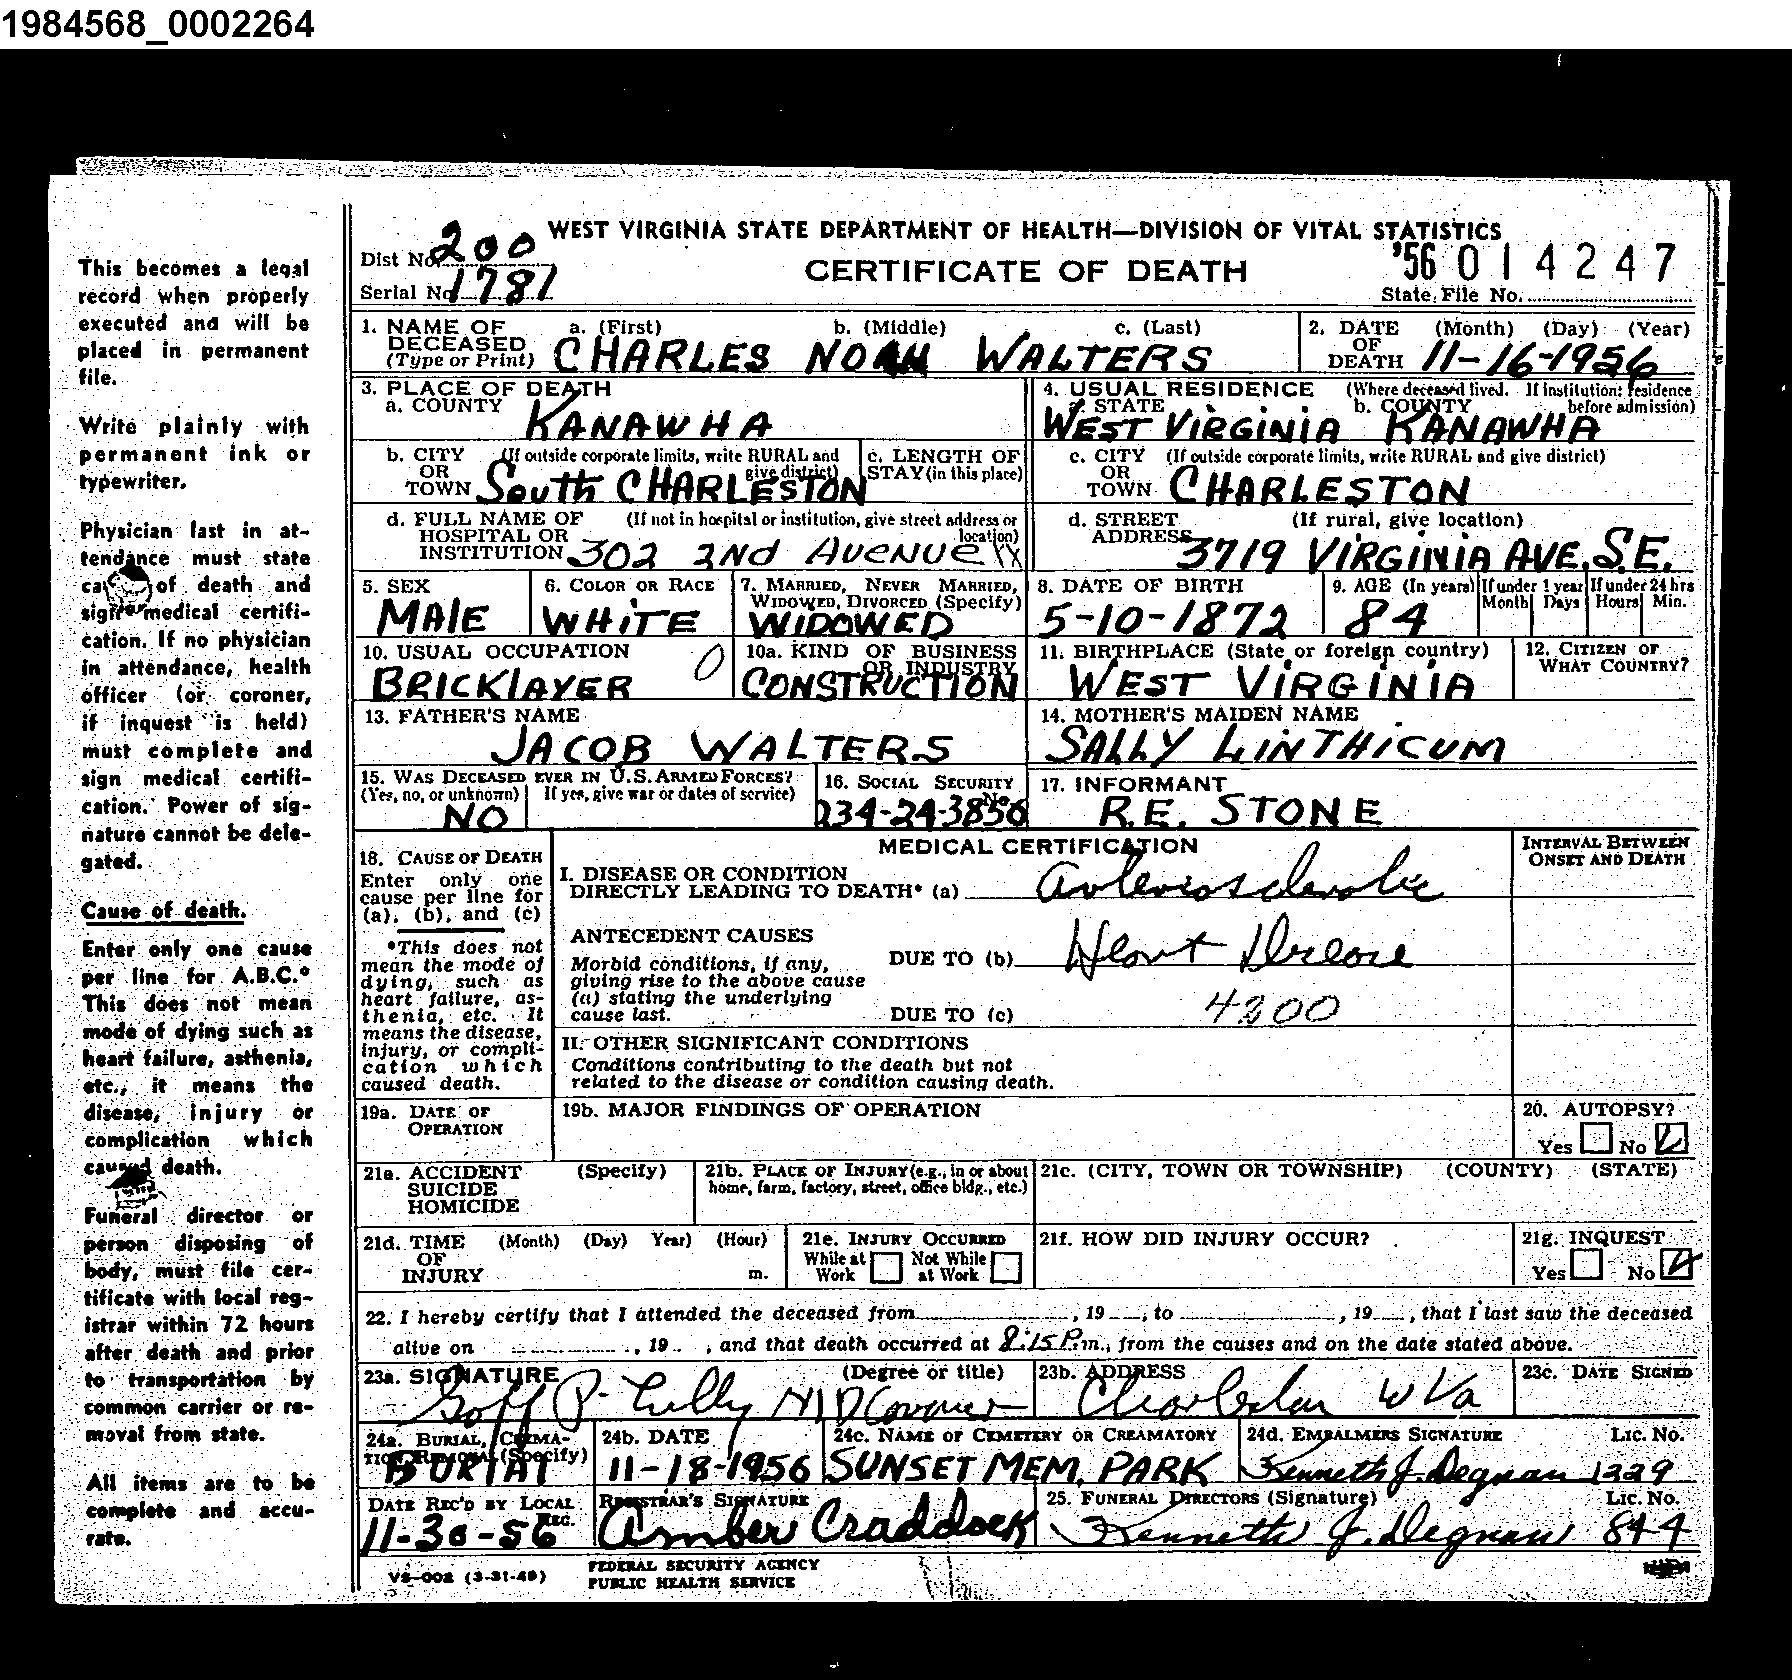 1984568_0002264
This becomes a legal
record when properly
executed and will be
placed in permanent
file.
Write plainly with
permanent ink or
typewriter.
Physician last in at-
tendance must state
ca of death and
sign medical certifi-
cation. If no physician
in attendance, health
officer (or coroner,
if inquest is held)
must complete and
sign medical certifi-
cation. Power of sig-
nature cannot be dele-
gated.
Cause of death.
Enter only one cause
per line for A.B.C.*
This does not mean
mode of dying such as
heart failure, asthenia,
etc., it means the
disease, injury or
complication which
caused death.
Funeral director or
person disposing of
body, must file cer-
tificate with local reg-
istrar within 72 hours
after death and prior
to transportation by
common carrier or re-
moval from state.
All items are to be
complete and accu-
rate.
WEST VIRGINIA STATE DEPARTMENT OF HEALTH—DIVISION OF VITAL STATISTICS
Dist No. 200
Serial No. 1781
CERTIFICATE OF DEATH
'56 014247
State File No.
1. NAME OF DECEASED (Type or Print) a. (First) b. (Middle) c. (Last)
CHARLES NOAH WALTERS
2. DATE OF DEATH (Month) (Day) (Year)
11-16-1956
3. PLACE OF DEATH
a. COUNTY
KANAWHA
4. USUAL RESIDENCE (Where deceased lived. If institution: residence before admission)
a. STATE b. COUNTY
WEST VIRGINIA KANAWHA
b. CITY OR TOWN (If outside corporate limits, write RURAL and give district)
South CHARLESTON
c. LENGTH OF STAY (in this place)
c. CITY OR TOWN (If outside corporate limits, write RURAL and give district)
CHARLESTON
d. FULL NAME OF HOSPITAL OR INSTITUTION (If not in hospital or institution, give street address or location)
302 2ND AVENUE XX
d. STREET ADDRESS (If rural, give location)
3719 VIRGINIA AVE, S.E.
5. SEX
MALE
6. COLOR OR RACE
WHITE
7. MARRIED, NEVER MARRIED, WIDOWED, DIVORCED (Specify)
WIDOWED
8. DATE OF BIRTH
5-10-1872
9. AGE (In years) If under 1 year If under 24 hrs
Month Days Hours Min.
84
10. USUAL OCCUPATION
BRICKLAYER 0
10a. KIND OF BUSINESS OR INDUSTRY
CONSTRUCTION
11. BIRTHPLACE (State or foreign country)
WEST VIRGINIA
12. CITIZEN OF WHAT COUNTRY?
13. FATHER'S NAME
JACOB WALTERS
14. MOTHER'S MAIDEN NAME
SALLY LINTHICUM
15. WAS DECEASED EVER IN U.S. ARMED FORCES?
(Yes, no, or unknown) If yes, give war or dates of service)
NO
16. SOCIAL SECURITY No.
234-24-3856
17. INFORMANT
R.E. STONE
MEDICAL CERTIFICATION
INTERVAL BETWEEN ONSET AND DEATH
18. CAUSE OF DEATH
Enter only one
cause per line for
(a), (b), and (c)
*This does not
mean the mode of
dying, such as
heart failure, as-
thenia, etc. It
means the disease,
injury, or compli-
cation which
caused death.
I. DISEASE OR CONDITION
DIRECTLY LEADING TO DEATH* (a) Arteriosclerotic
ANTECEDENT CAUSES
Morbid conditions, if any,
giving rise to the above cause
(a) stating the underlying
cause last.
DUE TO (b) Heart Disease
4200
DUE TO (c)
II. OTHER SIGNIFICANT CONDITIONS
Conditions contributing to the death but not
related to the disease or condition causing death.
19a. DATE OF OPERATION
19b. MAJOR FINDINGS OF OPERATION
20. AUTOPSY?
Yes No
21a. ACCIDENT SUICIDE HOMICIDE (Specify)
21b. PLACE OF INJURY (e.g., in or about
home, farm, factory, street, office bldg., etc.)
21c. (CITY, TOWN OR TOWNSHIP) (COUNTY) (STATE)
21d. TIME OF INJURY (Month) (Day) Year) (Hour)
m.
21e. INJURY OCCURRED
While at Work Not While at Work
21f. HOW DID INJURY OCCUR?
21g. INQUEST
Yes No
22. I hereby certify that I attended the deceased from , 19 , to , 19 , that I last saw the deceased
alive on , 19 , and that death occurred at 8:15 P.m., from the causes and on the date stated above.
23a. SIGNATURE (Degree or title)
Goff P. Lilly MD Coroner
23b. ADDRESS
Charleston W Va
23c. DATE SIGNED
24a. BURIAL, CREMA-
TION, REMOVAL (Specify)
BURIAL
24b. DATE
11-18-1956
24c. NAME OF CEMETERY OR CREAMATORY
SUNSET MEM. PARK
24d. EMBALMERS SIGNATURE Lic. No.
Kenneth J. Degnan 1229
DATE REC'D BY LOCAL REG.
11-30-56
REGISTRAR'S SIGNATURE
Amber Craddock
25. FUNERAL DIRECTORS (Signature) Lic. No.
Kenneth J. Degnan 844
VS-002 (3-31-49)
FEDERAL SECURITY AGENCY
PUBLIC HEALTH SERVICE